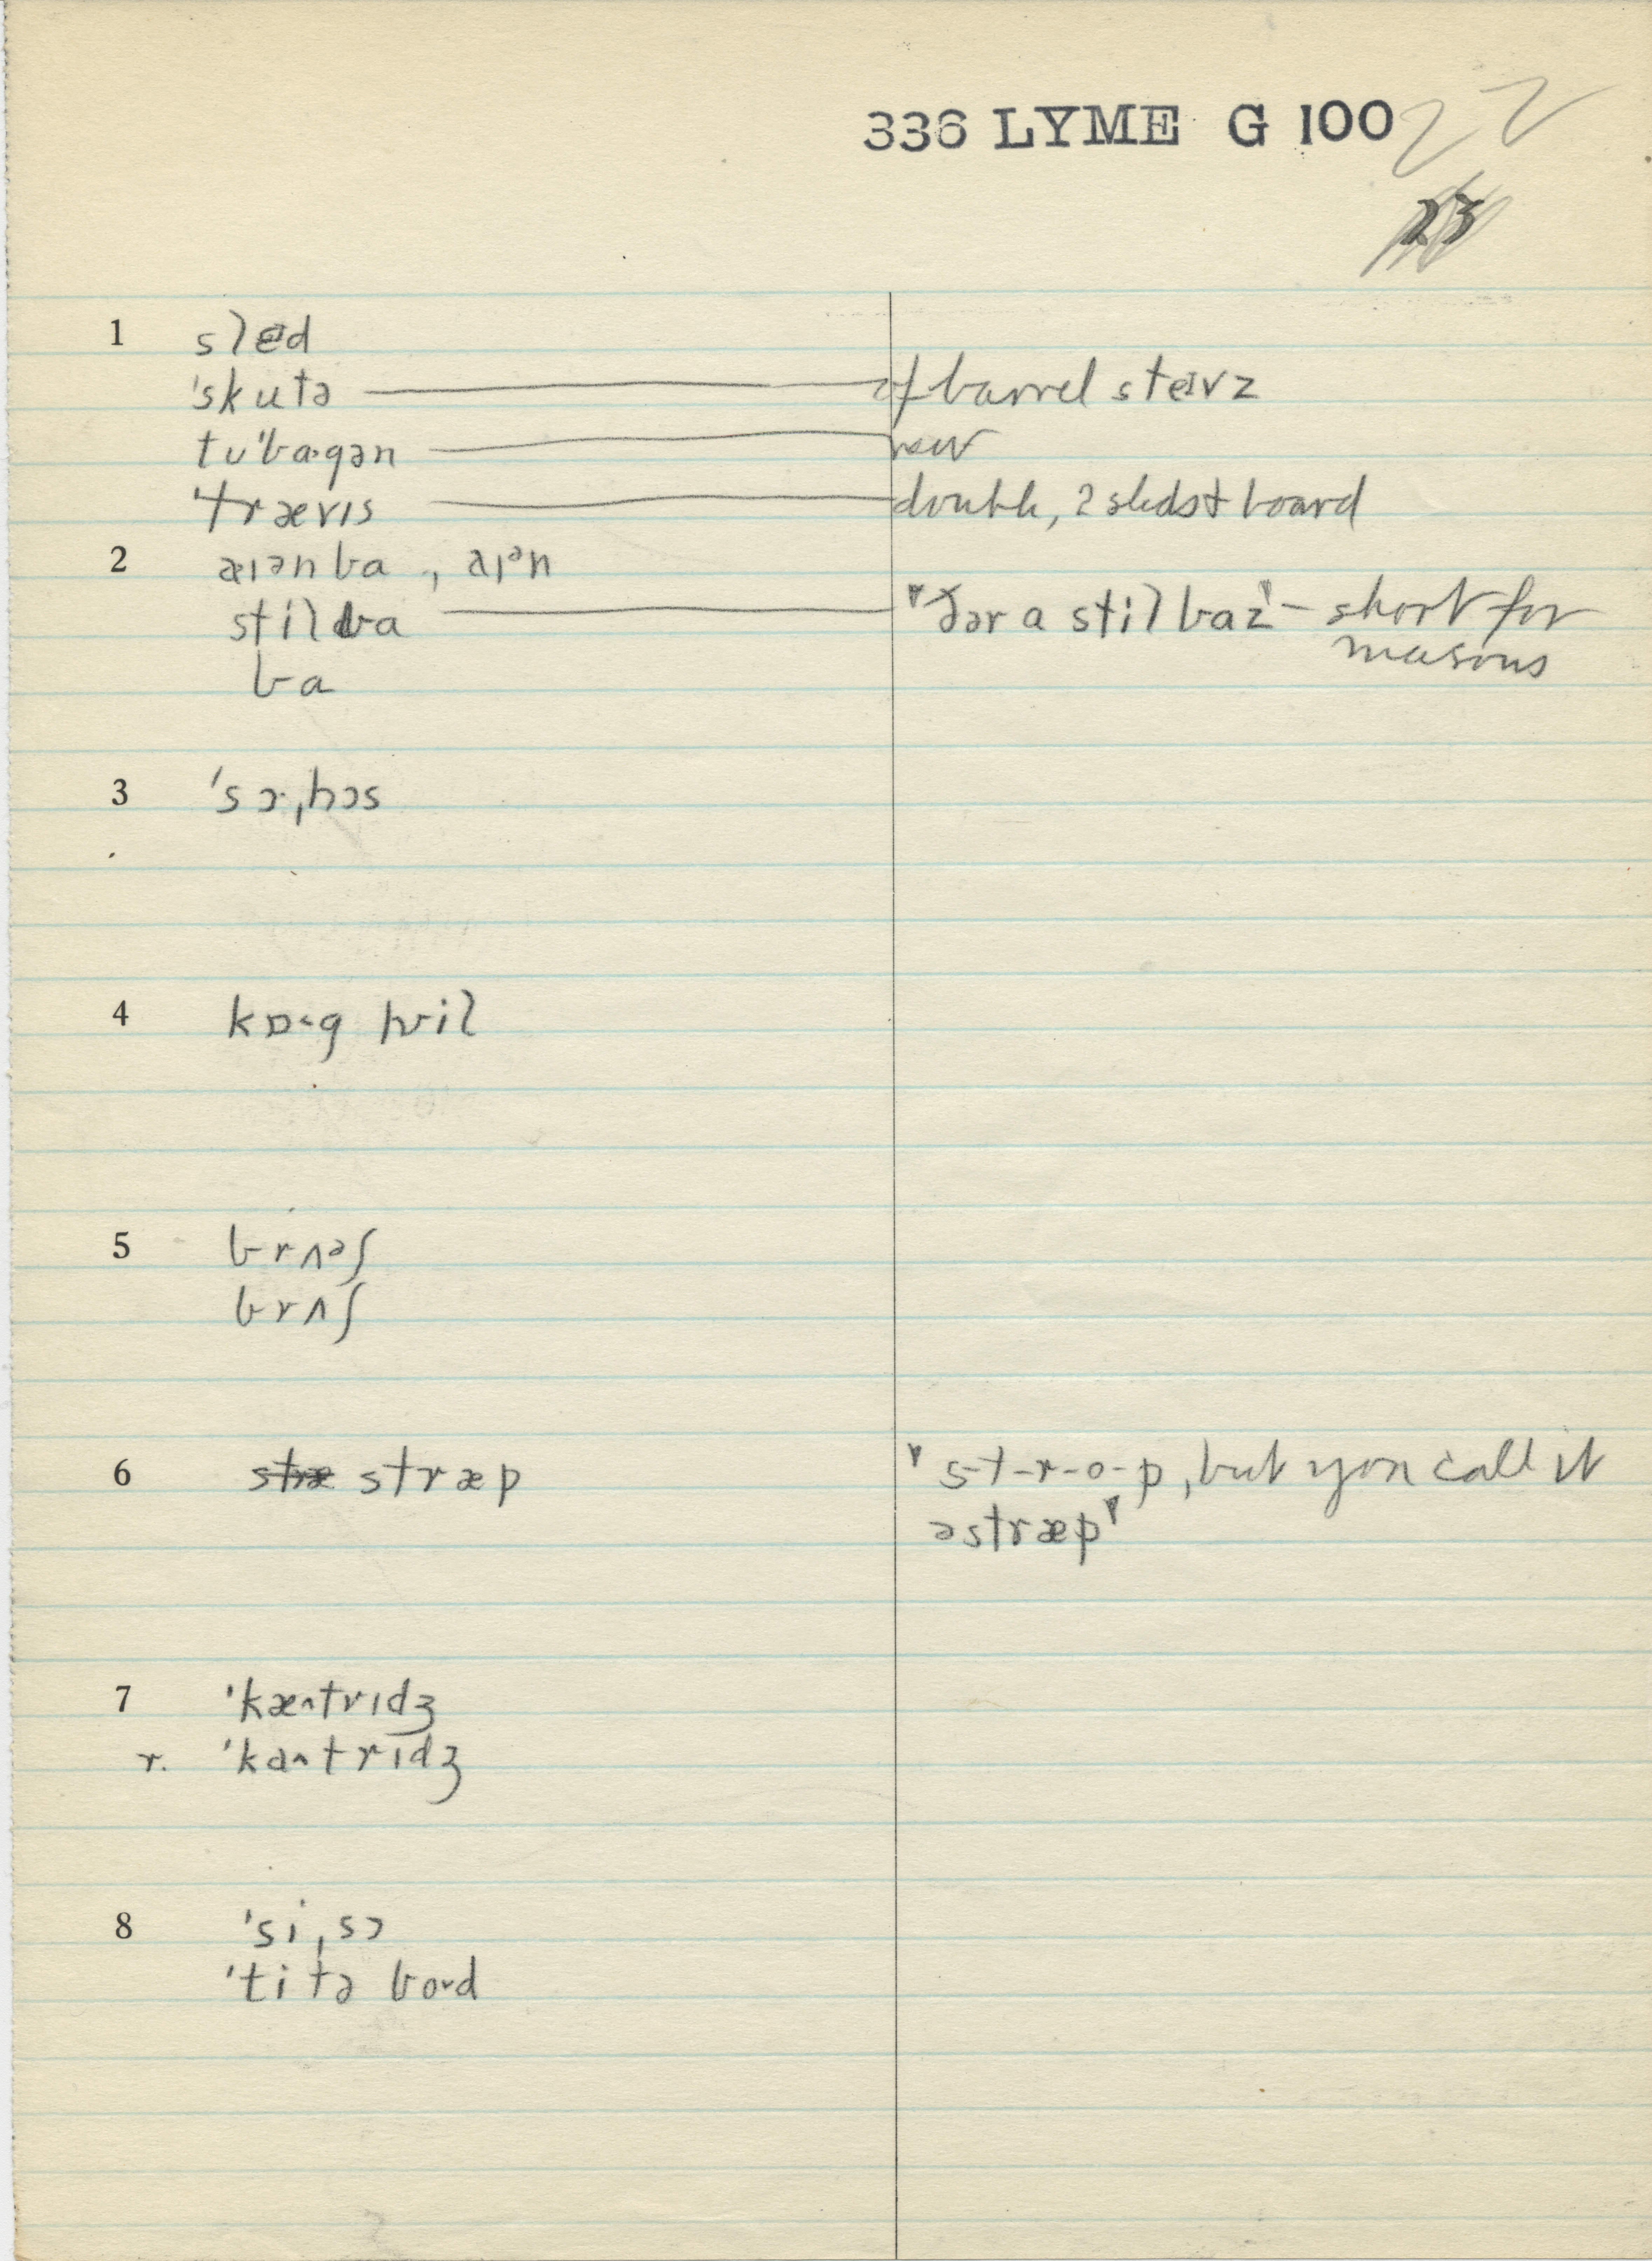 336 LYME G 100 22
23
1 slɛd
ˈskutə — of barrel steɪvz
tuˈba·gən — new
ˈtrævɪs — double, 2 sleds + board
2 æɪən ba, aɪən
stil ba — "ðər a stil baz" – short for
masons
ba
3 ˈsɔ·ˌhɔs
4 kɒ·g ʍil
5 brʌəʃ
brʌʃ
6 stræ stræp "s-t-r-o-p, but you call it
ə stræp"
7 ˈkæ^trɪdʒ
r. ˈka^trɪdʒ
8 ˈsiˌsɔ
ˈtitə bo˅d